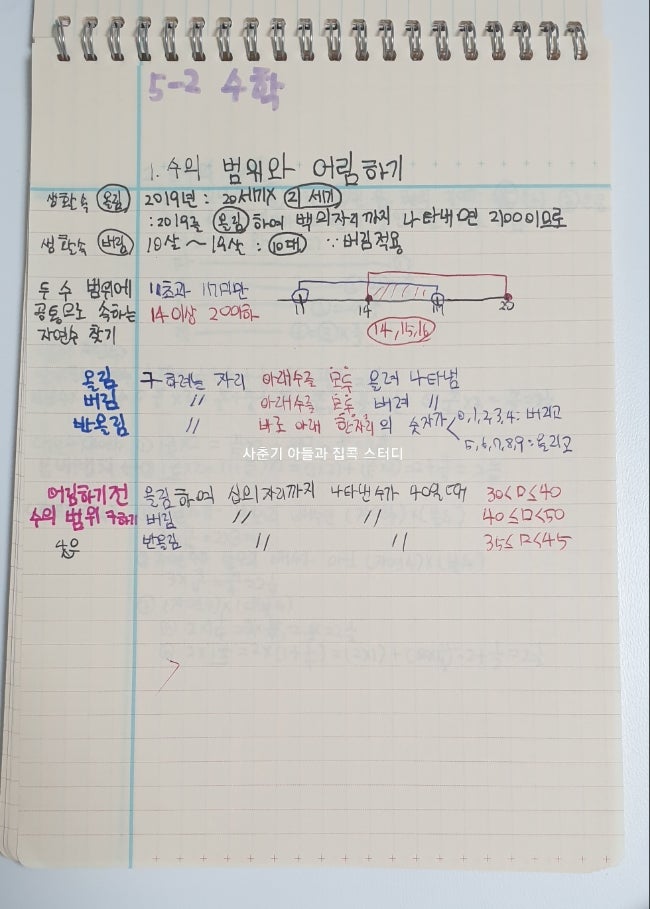 5-2 수학
1. 수의 범위와 어림하기
생활속 올림 2019년 : 20세기X 21세기
: 2019를 올림하여 백의자리까지 나타내면 2100이므로
생활속 버림 10살~19살 : 10대 ∵버림적용
두 수 범위에 11초과 17미만
공통으로 속하는 14이상 20이하
자연수 찾기
11 14 17 20
14, 15, 16
올림 구하려는 자리 아래수를 모두 올려 나타냄
버림 〃 아래수를 모두 버려 〃
반올림 〃 바로 아래 한자리의 숫자가 0,1,2,3,4: 버리고
5,6,7,8,9: 올리고
사춘기 아들과 집콕 스터디
어림하기전 올림하여 십의자리까지 나타낸수가 40일때 30<□≤40
수의 범위 구하기 버림 〃 〃 40≤□<50
반올림 〃 〃 35≤□<45